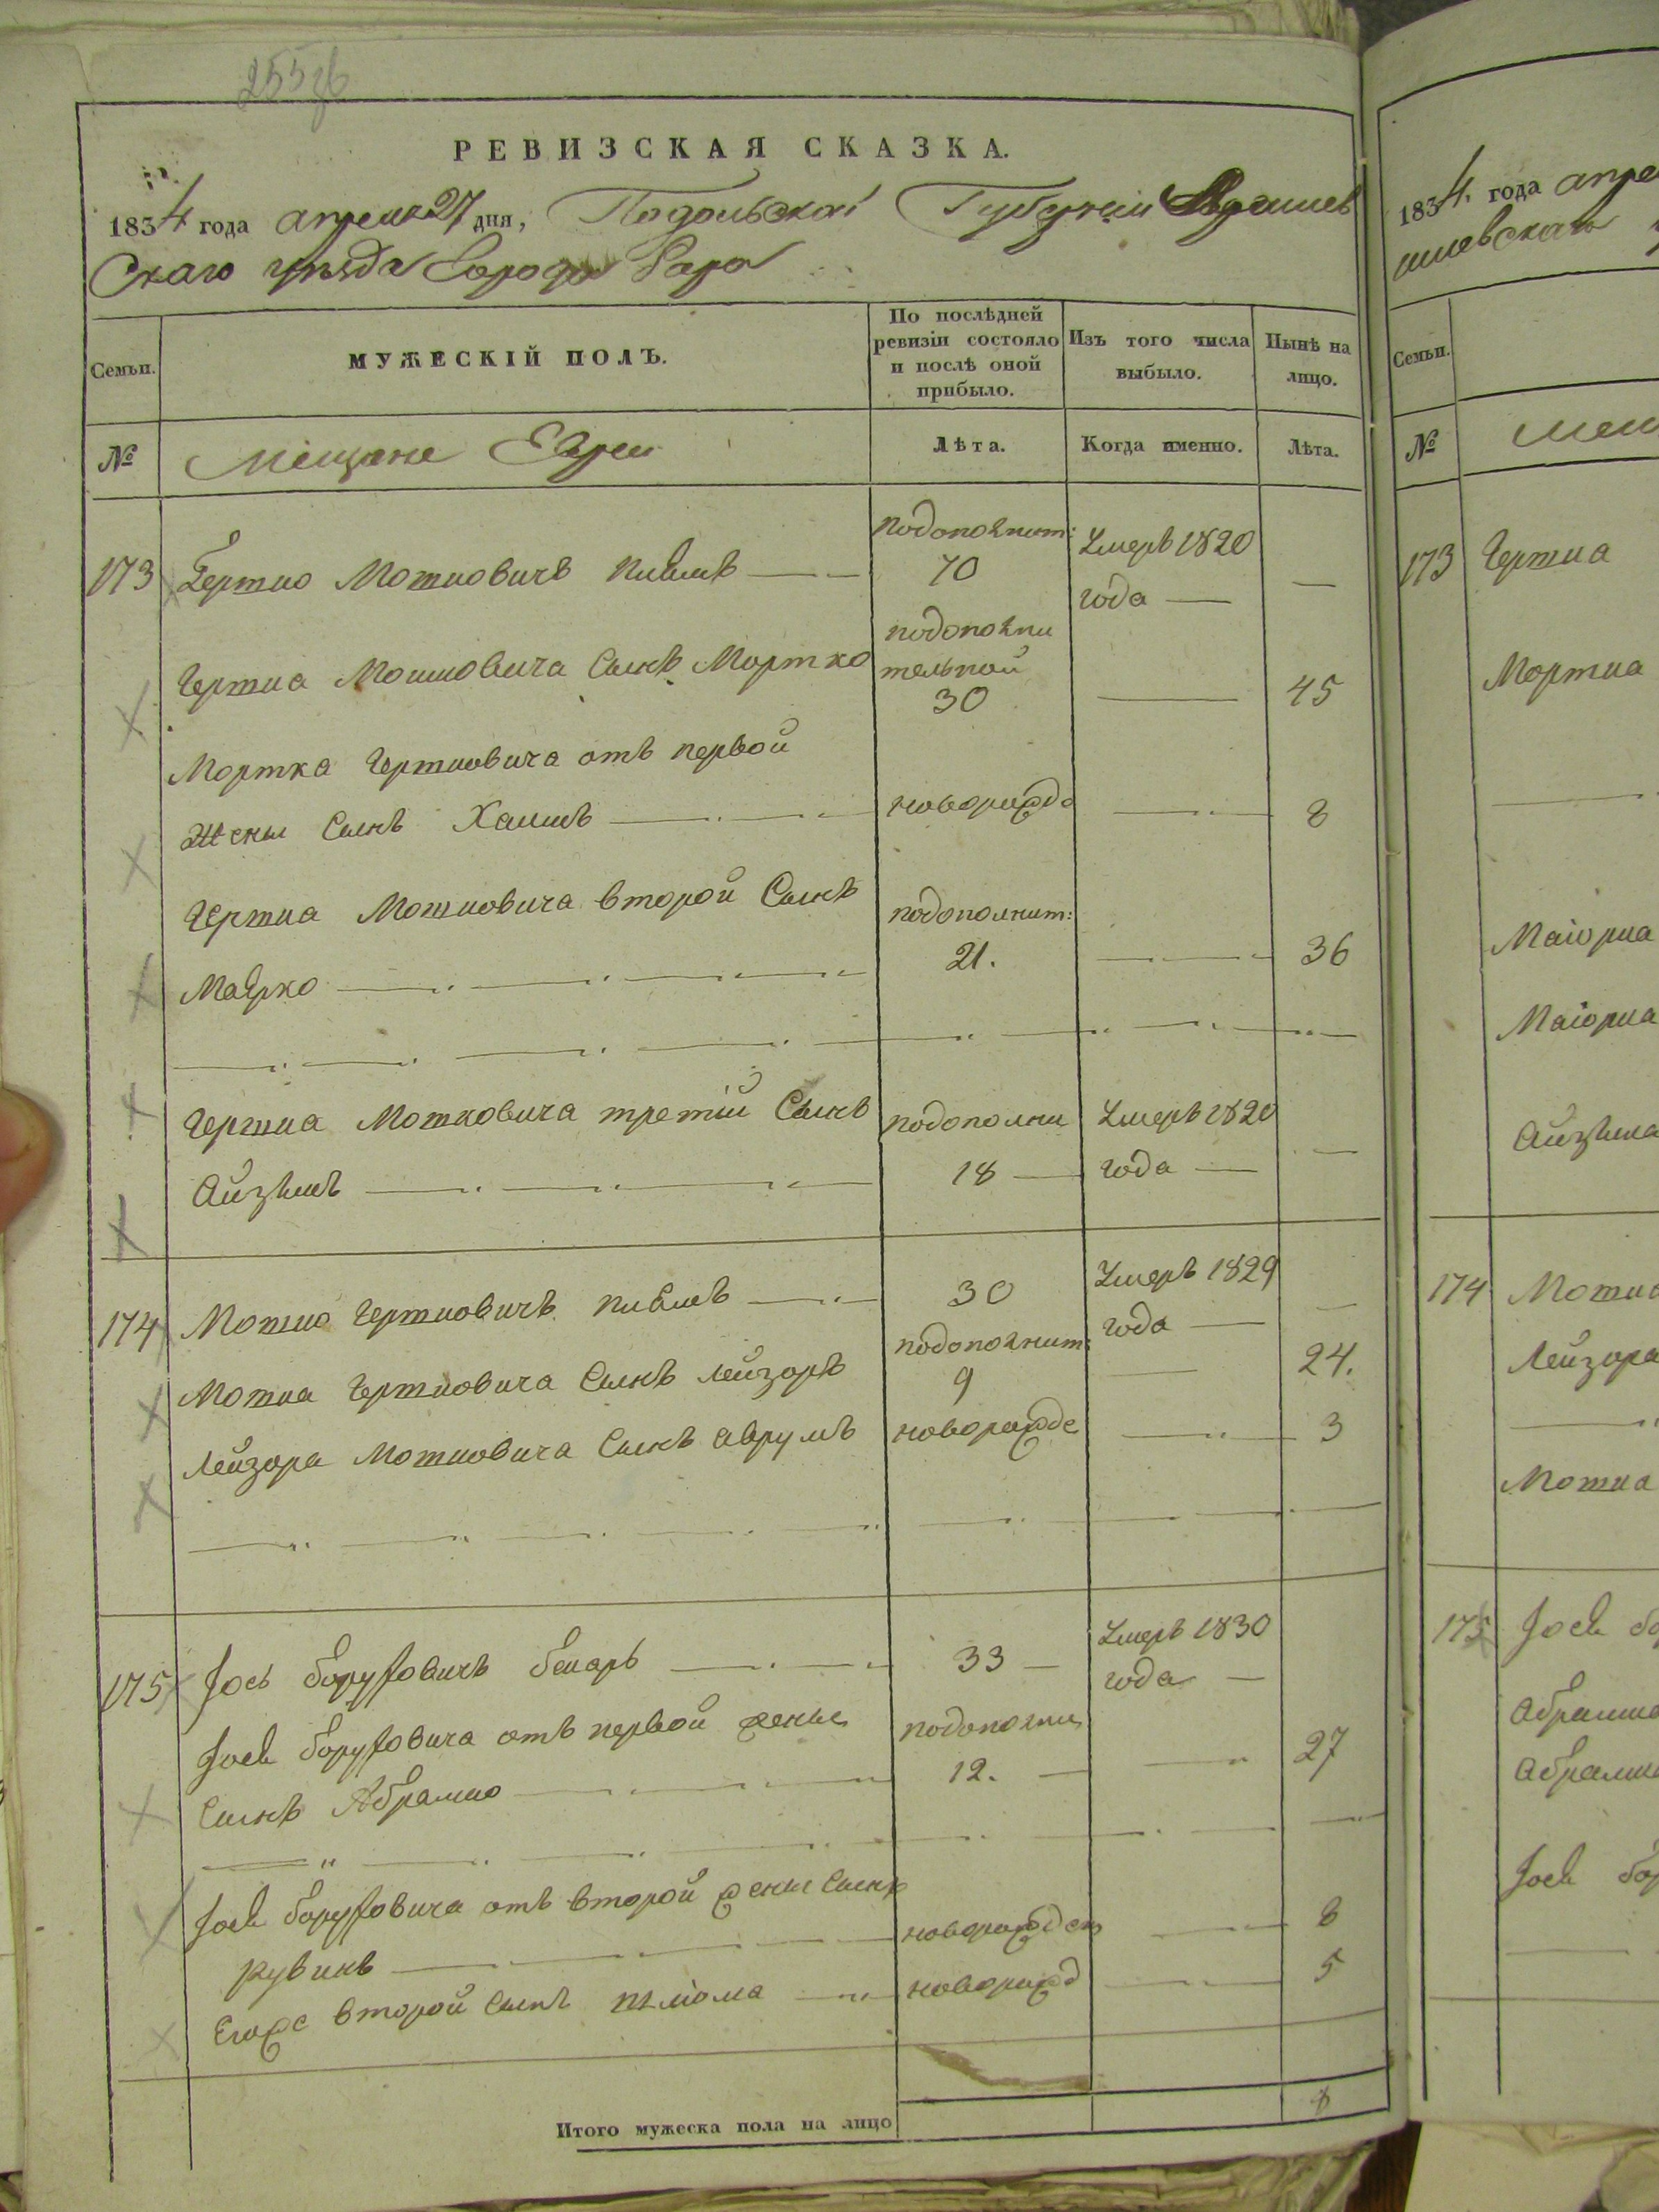 РЕВИЗСКАЯ СКАЗКА.
1834 года апреля 27 дня, Подольской Губернии Ямполь
скаго уезда города Бара
Семьи.
МУЖЕСКІЙ ПОЛЪ.
По послѣдней ревизіи состояло и послѣ оной прибыло.
Изъ того числа выбыло.
Нынѣ на лицо.
№
Мещане Евреи
Лѣта.
Когда именно.
Лѣта.
173 Гертко Мошковичъ подополнит: 70 Умеръ 1820 года —
Гертка Мошковича Сынъ Мортко подополнительной 30 — 45
Мортка Гертковича отъ первой
Жены Сынъ Хаимъ новорожд — 8
Гертка Мошковича второй Сынъ подополнит:
Маерко 21. — 36
Гертка Мошковича третій Сынъ подополни Умеръ 1820
Айзикъ 18 — года —
174 Мошко Гертковичъ 30 Умеръ 1829 года —
Мошка Гертковича Сынъ Лейзоръ подополнит: 9 — 24.
Лейзора Мошковича Сынъ Аврумъ новорожде — 3
175 Іось Боруховичъ 33 — Умеръ 1830 года —
Іося Боруховича отъ первой жены подополни
Сынъ Абрамко 12. — 27
Іося Боруховича отъ второй жены Сынъ
Рувинъ новорожден — 8
Егоже второй Сынъ новорожд — 5
Итого мужеска пола на лицо 8
1834 года апре
Семьи.
№
173 Гертка
Мортка
Маіорка
Маіорка
Айзика
174 Мошка
Лейзора
Мошка
175 Іося Бо
Абрамка
Абрамка
Іося Бор